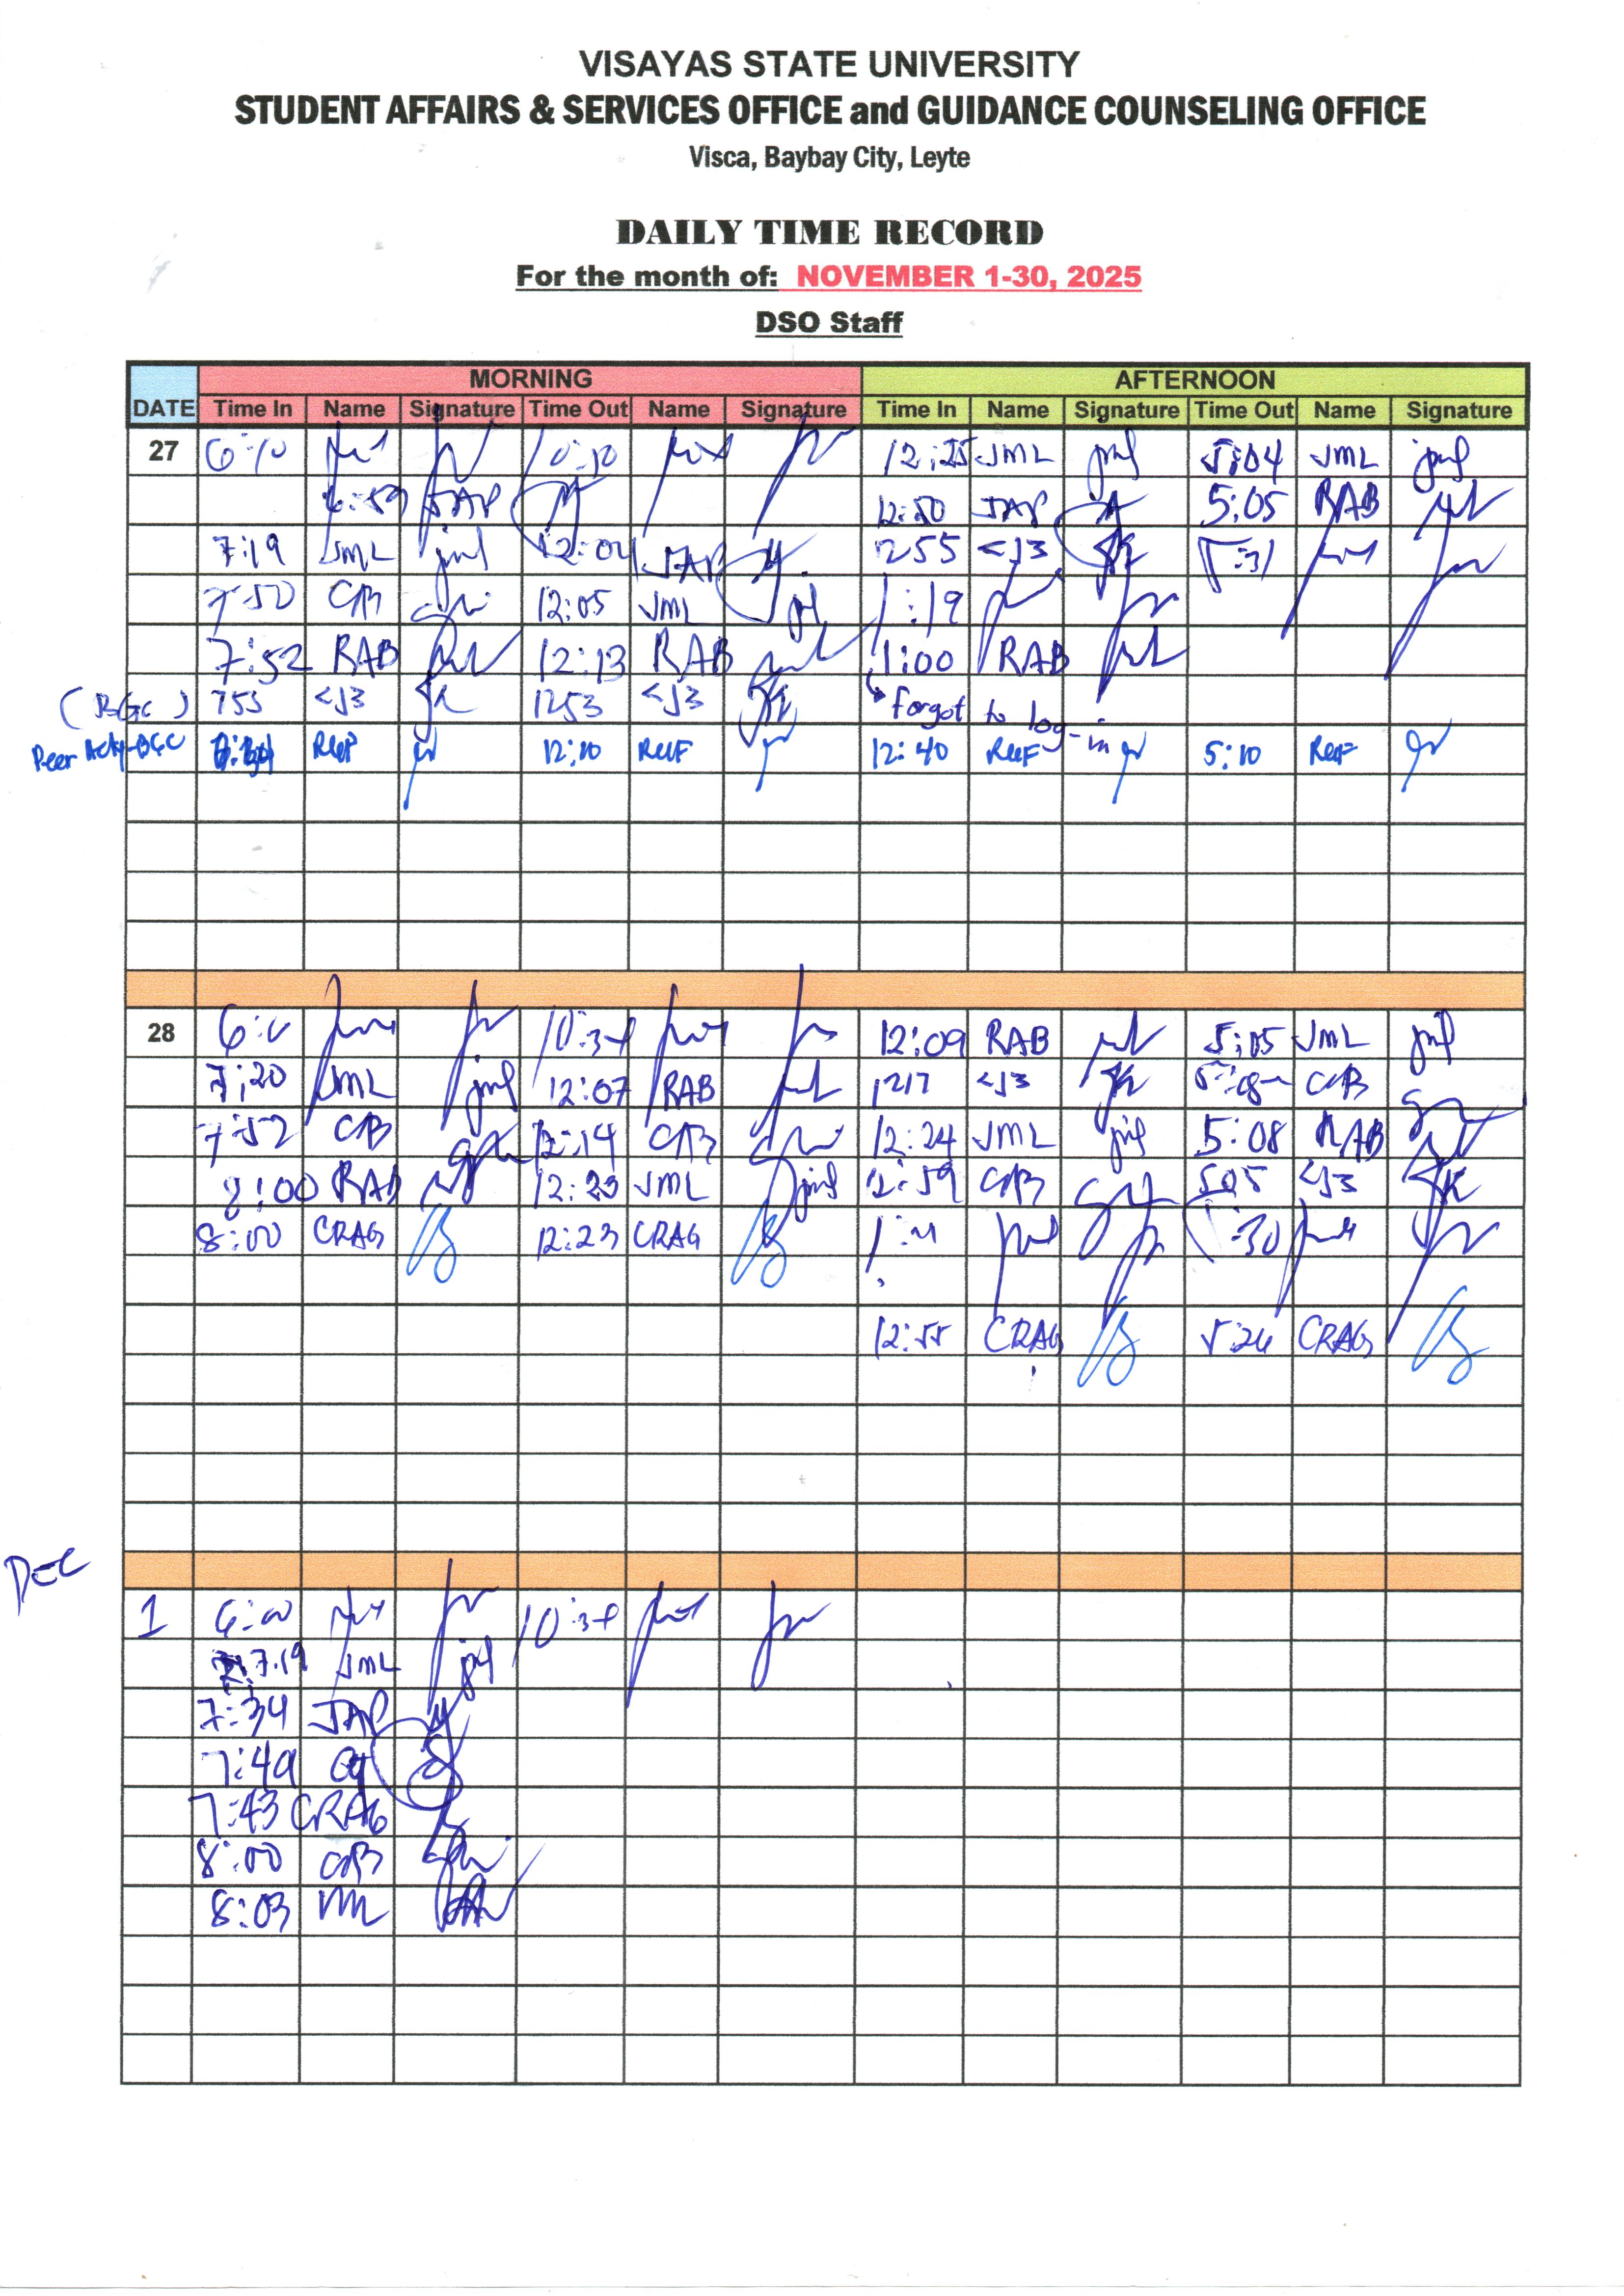 VISAYAS STATE UNIVERSITY
STUDENT AFFAIRS & SERVICES OFFICE and GUIDANCE COUNSELING OFFICE
Visca, Baybay City, Leyte
DAILY TIME RECORD
For the month of: NOVEMBER 1-30, 2025
DSO Staff
MORNING AFTERNOON
DATE Time In Name Signature Time Out Name Signature Time In Name Signature Time Out Name Signature
27 6:10 10:30 12:25 JML 5:04 JML
6:59 JAP 12:50 JAP 5:05 RAB
7:19 JML 12:04 JAP 1255 <J3 5:31
7:50 CB 12:05 JML 1:19
7:52 RAB 12:13 RAB 1:00 RAB
(BGC) 753 <J3 1253 <J3 Forgot to log-in
Peer 12:10 ReeF 12:40 ReeF 5:10 ReeF
28 10:34 12:09 RAB 5:05 JML
7:20 JML 12:07 RAB 1217 <J3 CB
7:52 CB 12:14 CB 12:24 JML 5:08 RAB
8:00 RAB 12:23 JML 12:59 CB 505 <J3
8:00 CRAG 12:23 CRAG 5:30
12:55 CRAG 5:26 CRAG
DEC
1 6:00 10:34
7:19 JML
7:34 JAP
7:49
7:43 CRAG
8:00 CB
8:03